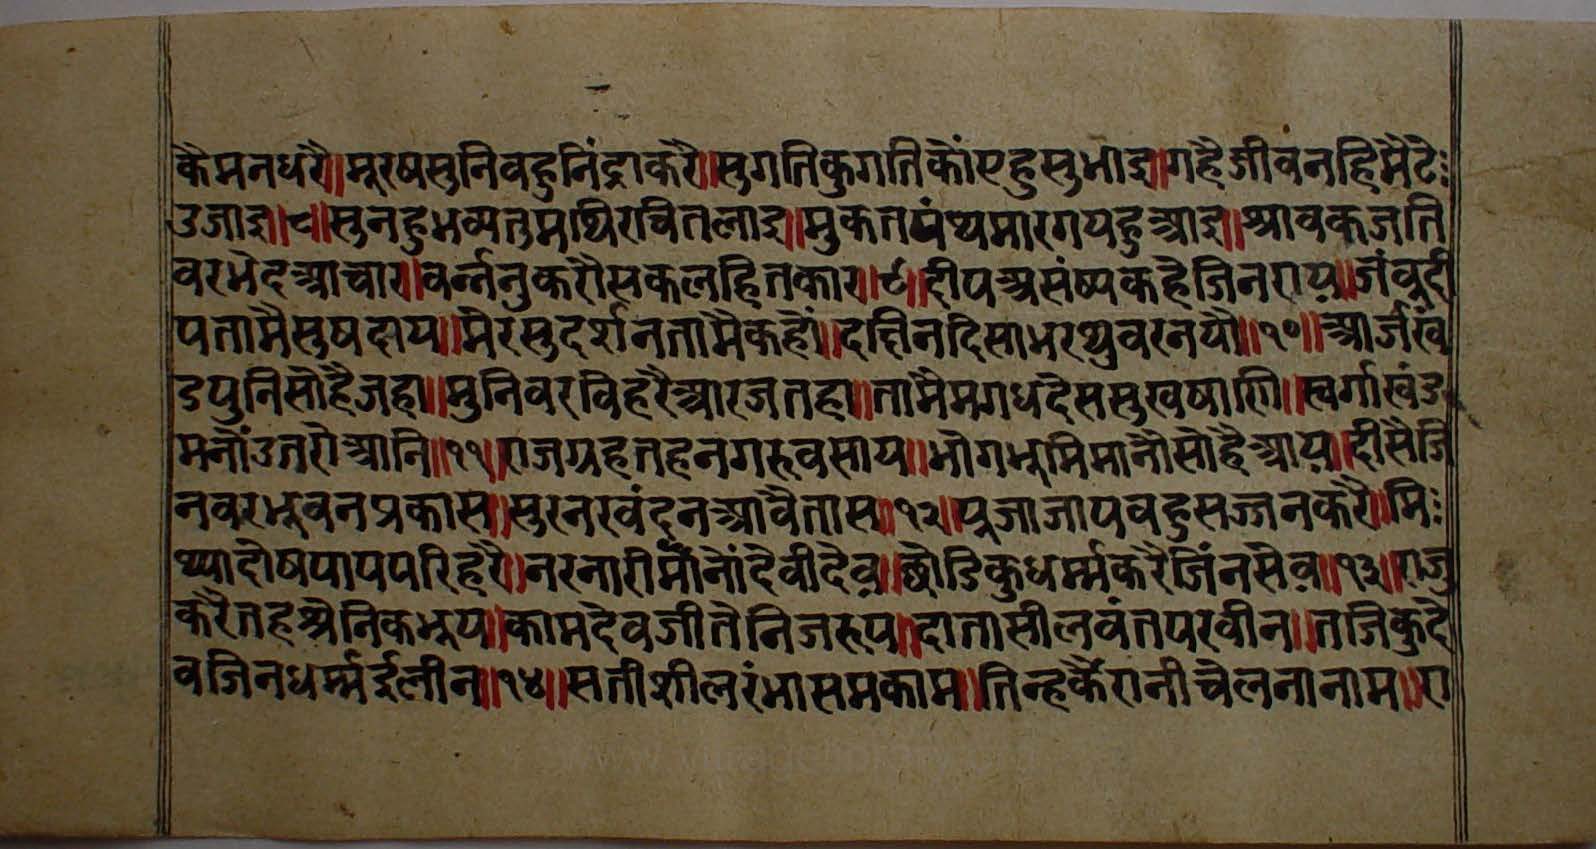 कैमनधरै॥मूरषसुनिवहुनिंद्राकरै॥सुगतिकुगतिकौंएहुसुभाइ॥गहैजीवनहिमैटे
उजाइ॥८॥सुनहुभव्यतुमथिरचितलाइ॥मुकतपंथ्यमारगयहुआइ॥श्रावकजति
वरभेदआचार॥वर्न्तनुकरौसकलहितकार॥९॥दीपअसंष्यकहैजिनराय॥जंवूदी
पतामैसुषदाय॥मेरसुदर्शनतामैकहौं॥दछिनदिसाभरथुवरनयौ॥१०॥आर्जषं
डपुनिसोहैजहा॥मुनिवरविहरैआरजतहा॥तामैमगधदेससुखषांनि॥स्वर्गाखंड
मनौंउतरौआनि॥११॥राजग्रहतहनगरुवसाय॥भोगभूमिमानौसोहैआय॥दीसैजि
नवरभूवनप्रकास॥सुरनरवंदनआवैतास॥१२॥पूजाजापवहुसज्जनकरै॥मि
थ्यादोषपापपरिहरै॥नरनारीमांनौंदेवीदेव॥छोडिकुधर्म्मकरैजिंनसेव॥१३॥राजु
करैतहश्रेनिकभूप॥कामदेवजीतेनिजरूप॥दातासीलवंतपरवीन॥तजिकुदे
वजिनधर्म्मईलीन॥१४॥सतीशीलरंभासमकाम॥तिन्हकैरानीचेलनानाम॥रा